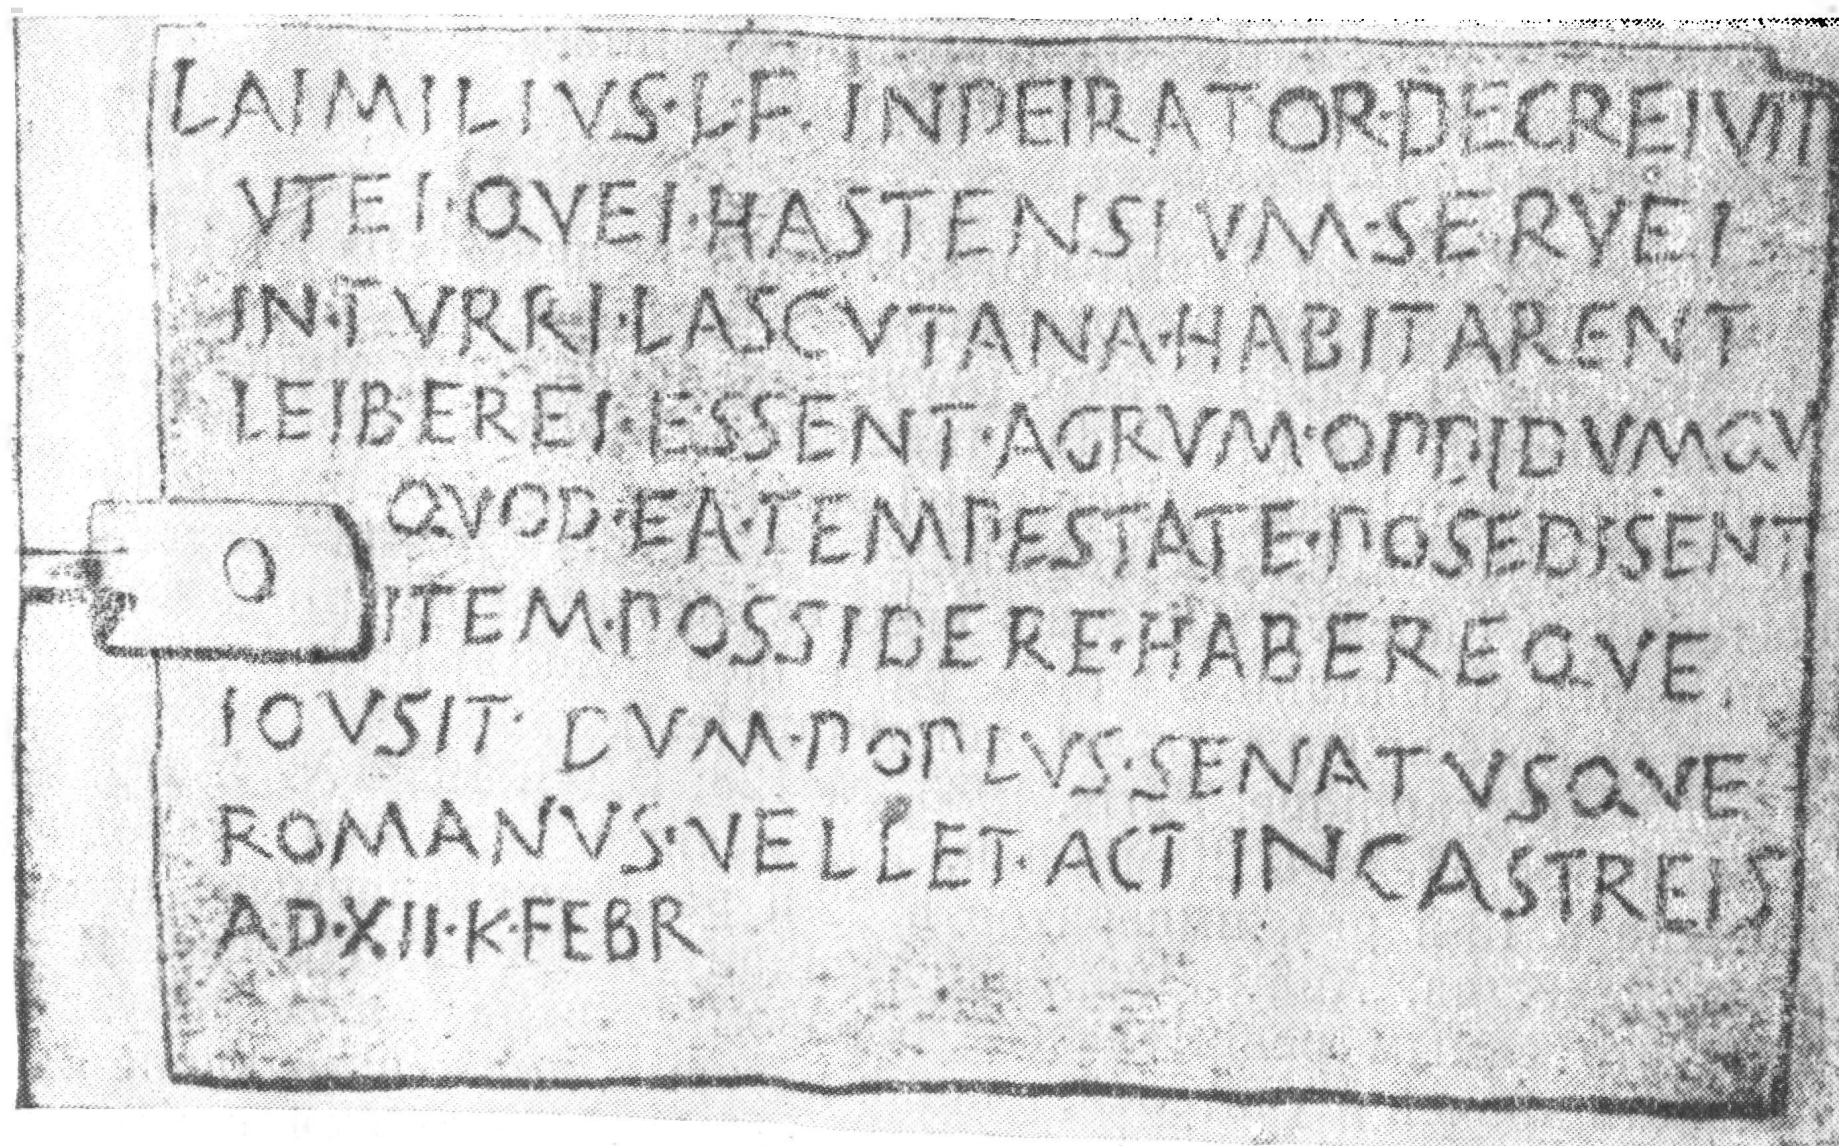 L AIMILIVS·L·F· INPEIRATOR·DECREIVIT
VTEI·QVEI·HASTENSIVM·SERVEI
IN·TVRRI·LASCVTANA·HABITARENT
LEIBEREI·ESSENT·AGRVM·OPPIDVMQV
QVOD·EA·TEMPESTATE·POSEDISENT
ITEM·POSSIDERE·HABEREQVE
IOVSIT· DVM·POPLVS·SENATVSQVE
ROMANVS·VELLET·ACT IN CASTREIS
A D·XII·K·FEBR